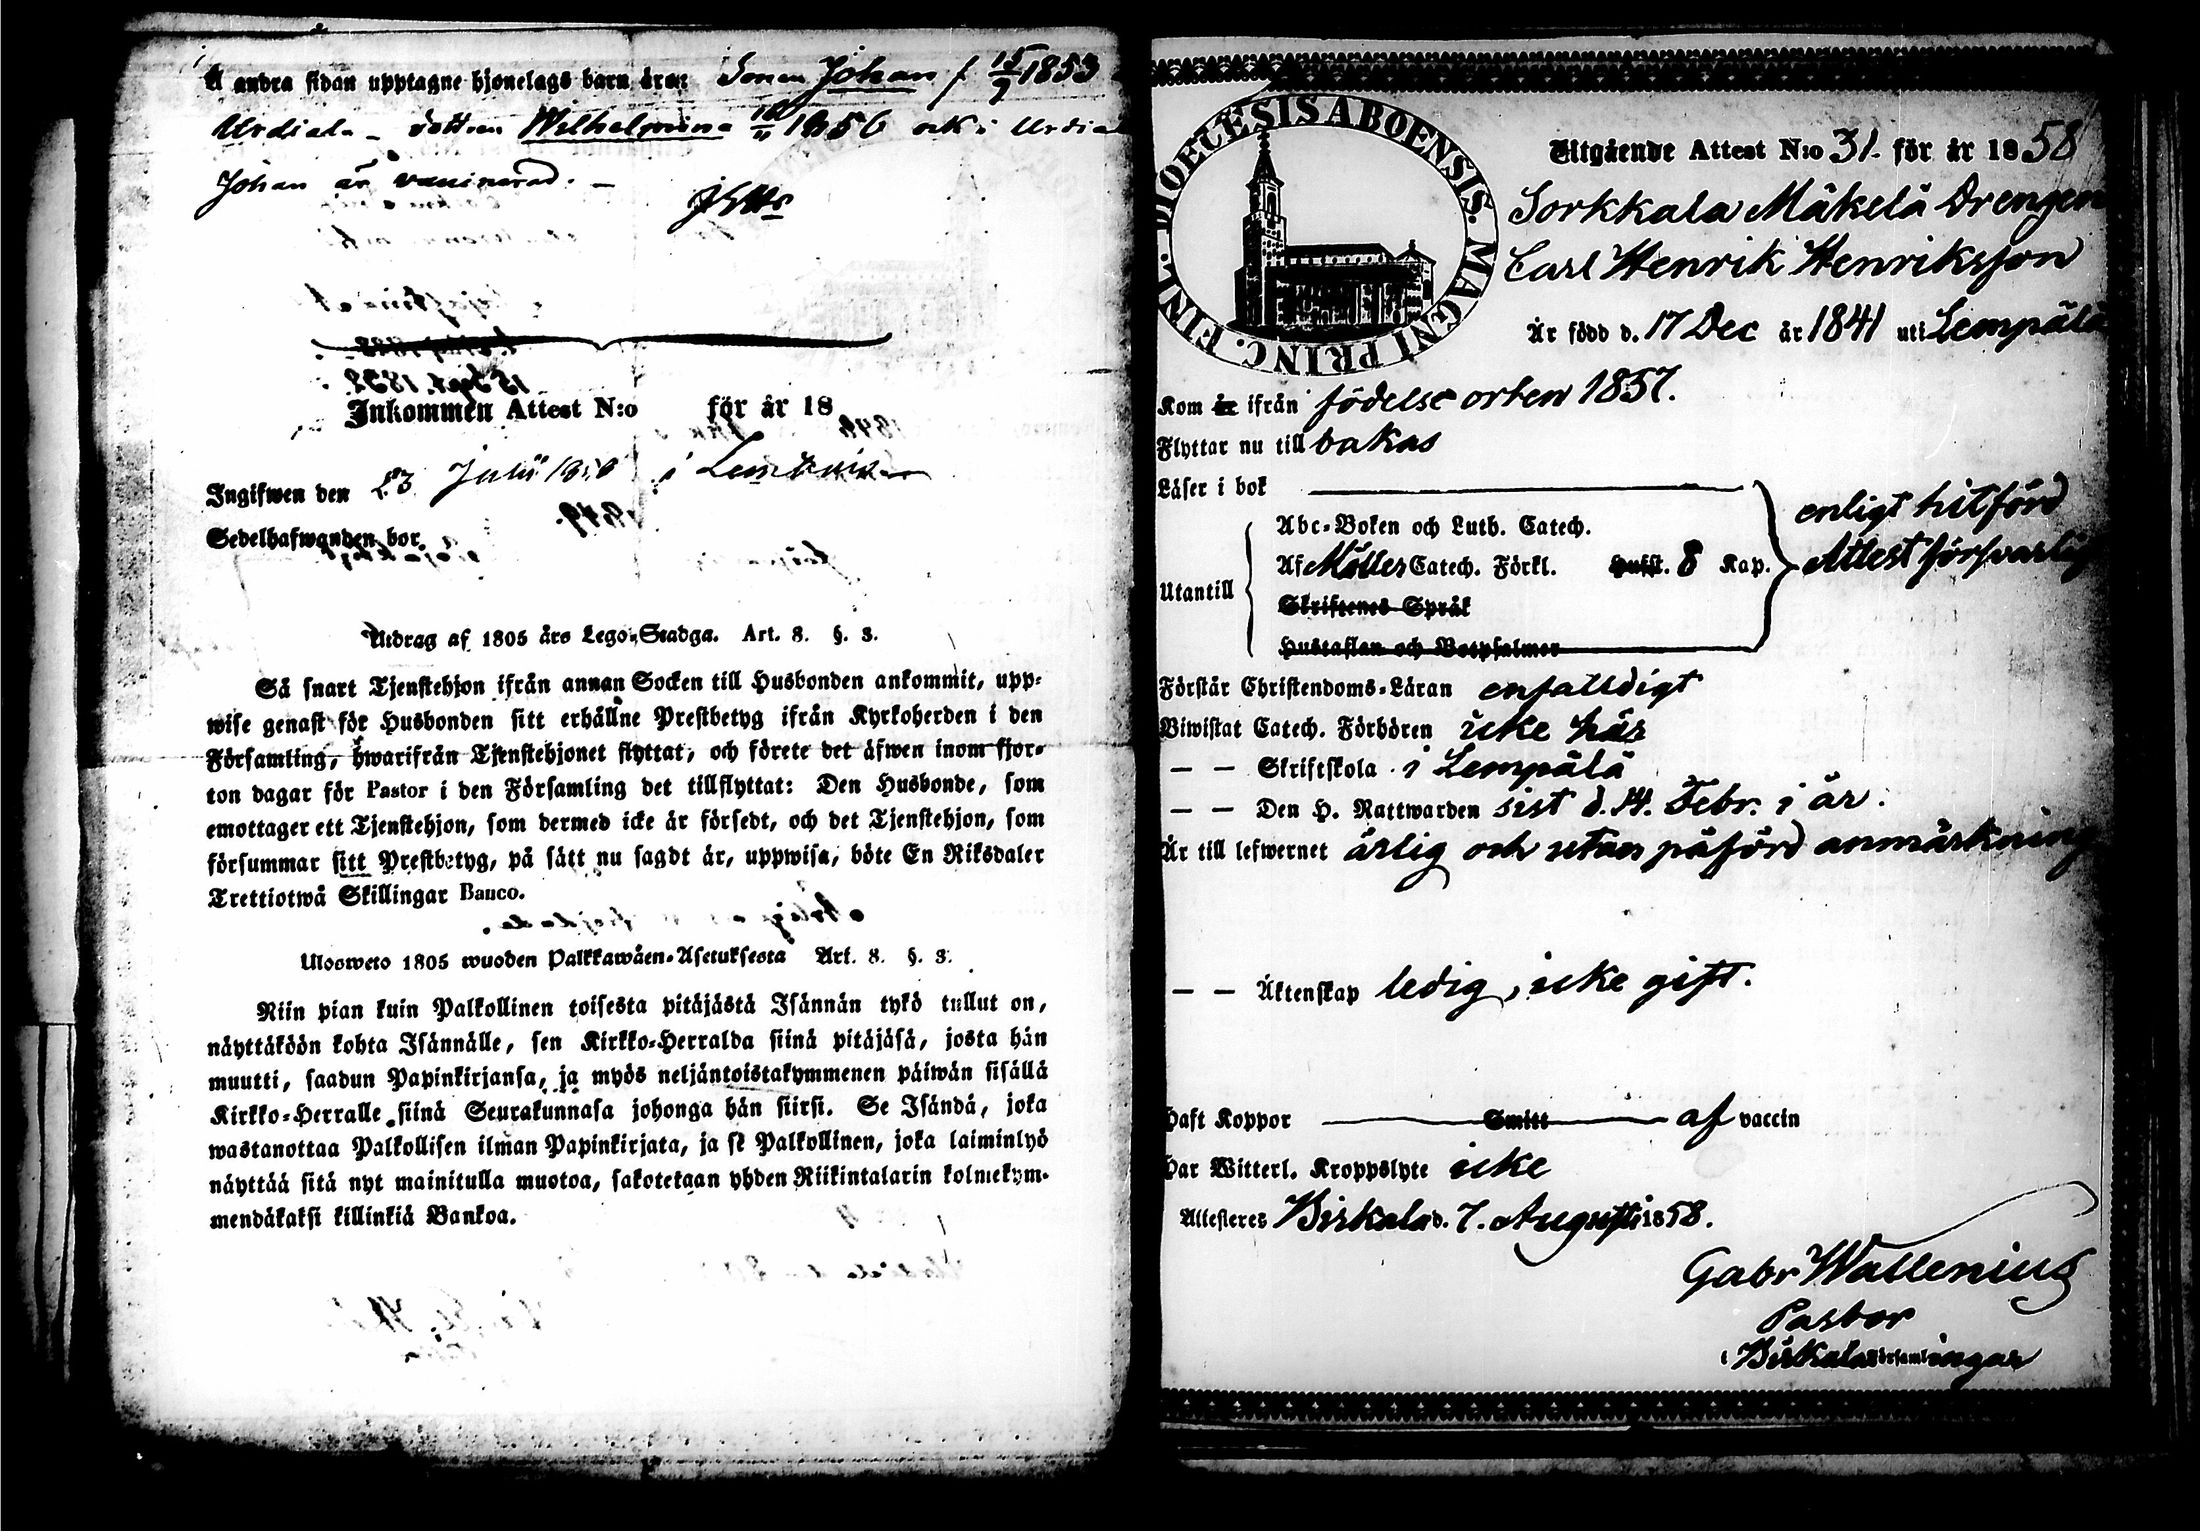 Å andra sidan upptagne hjonelags barn äro: Sonen Johan f. 15/9 1853
Urdiala – dottren Wilhelmina 18/11 1856 ock i Urdiala
Johan är vaccinerad. –
Inkommen Attest N:o för år 18
Ingifwen den 23 Julii 1858 i
Sedelhafwanden bor
Utdrag af 1805 års Lego-Stadga. Art. 8. §. 3.
Så snart Tjenstehjon ifrån annan Socken till Husbonden ankommit, upp-
wise genast för Husbonden sitt erhållne Prestbetyg ifrån Kyrkoherden i den
Församling, hwarifrån Tjenstehjonet flyttat, och förete det äfwen inom fjor-
ton dagar för Pastor i den Församling det tillflyttat: Den Husbonde, som
emottager ett Tjenstehjon, som dermed icke är försedt, och det Tjenstehjon, som
försummar sitt Prestbetyg, på sätt nu sagdt är, uppwisa, böte En Riksdaler
Trettiotwå Skillingar Banco.
Ulosweto 1805 wuoden Palkkawäen-Asetuksesta Art. 8. §. 3.
Niin pian kuin Palkollinen toisesta pitäjästä Isännän tykö tullut on,
näyttäköön kohta Isännälle, sen Kirkko-Herralda siinä pitäjäsä, josta hän
muutti, saadun Papinkirjansa, ja myös neljäntoistakymmenen päiwän sisällä
Kirkko-Herralle siinä Seurakunnasa johonga hän siirsi. Se Isändä, joka
wastanottaa Palkollisen ilman Papinkirjata, ja se Palkollinen, joka laiminlyö
näyttää sitä nyt mainitulla muotoa, sakotetaan yhden Riikintalarin kolmekym-
mendäkaksi killinkiä Bankoa.
DIOECESIS ABOENSIS. MAGNI PRINC. FINL.
Utgående Attest N:o 31. för år 1858
Sorkkala Mäkelä Drengen
Carl Henrik Henriksson
Är född d. 17 Dec år 1841 uti Lempälä
Kom år ifrån födelse orten 1857.
Flyttar nu till bakas
Läser i bok
enligt hitförd
Abc-Boken och Luth. Catech.
Attest försvarlig
Utantill
Af Möllers Catech. Förkl. Hufst. 8 Kap.
Skriftenes Språk
Hustaflan och Botpsalmer
Förstår Christendoms-Läran enfalldigt
Biwistat Catech. Förhören icke här
— — Skriftskola i Lempälä
— — Den H. Nattwarden sist d. 14. Febr. i år.
Är till lefwernet ärlig och utan påförd anmärkning
— — Äktenskap ledig, icke gift.
Haft Koppor Smitt af vaccin
Har Witterl. Kroppslyte icke
Attesteres Birkala d. 7. Augusti 1858.
Gabr Wallenius
Pastor
i Birkala Församlingar